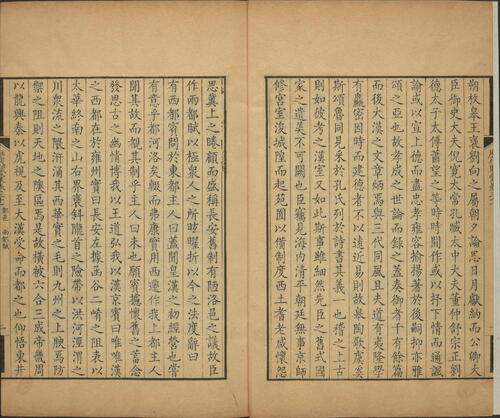 朔枚皐王襃劉向之屬朝夕論思日月獻納而公卿大
臣御史大夫倪寬太常孔臧太中大夫董仲舒宗正劉
德太子太傅蕭望之等時時間作或以抒下情而通諷
諭或以宣上德而盡忠孝雍容揄揚著於後嗣抑亦雅
頌之亞也故孝成之世論而錄之蓋奏御者千有餘篇
而後大漢之文章炳焉與三代同風且夫道有夷隆學
有麤密因時而建德者不以遠近易則故皋陶歌虞奚
斯頌魯同見采於孔氏列於詩書其義一也稽之上古
則如彼考之漢室又如此斯事雖細然先臣之舊式國
家之遺美不可闕也臣竊見海内清平朝廷無事京師
修宮室浚城隍而起苑囿以備制度西土耆老咸懷怨
思冀上之睠顧而盛稱長安舊制有陋洛邑之議故臣
作兩都賦以極衆人之所眩曜折以今之法度辭曰
有西都賓問於東都主人曰蓋聞皇漢之初經營也嘗
有意乎都河洛矣輟而弗康實用西遷作我上都主人
聞其故而覩其制乎主人曰未也願賓攄懷舊之蓄念
發思古之幽情博我以王道弘我以漢京賓曰唯唯漢
之西都在於雍州實曰長安左據函谷二崤之阻表以
太華終南之山右界襃斜隴首之險帶以洪河涇渭之
川衆流之隈汧涌其西華實之毛則九州之上腴焉防
禦之阻則天地之隩區焉是故橫被六合三成帝畿周
以龍興秦以虎視及至大漢受命而都之也仰悟東井